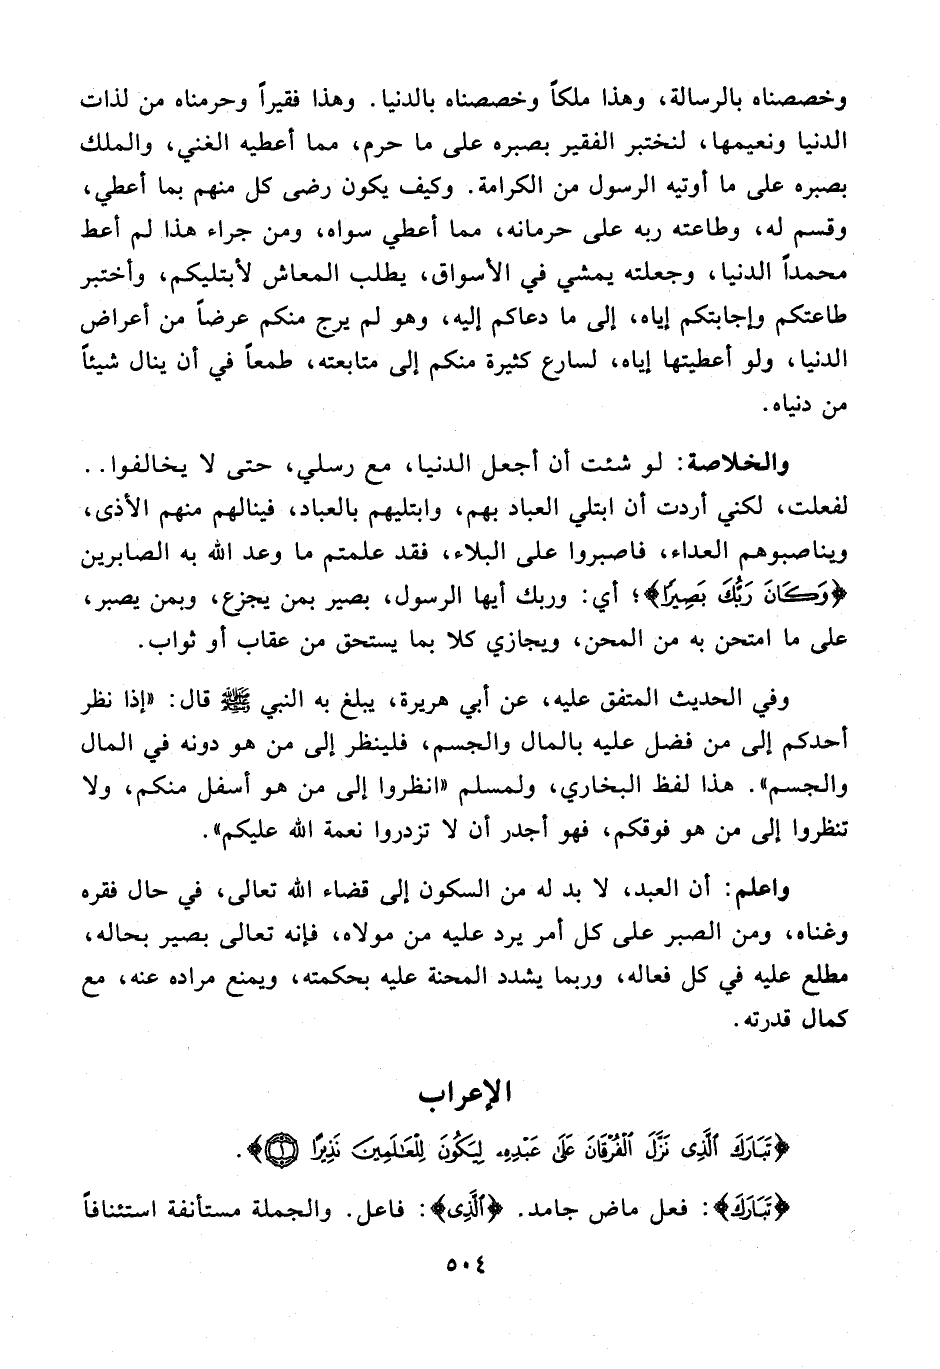 وخصصناه بالرسالة، وهذا ملكاً وخصصناه بالدنيا. وهذا فقيراً وحرمناه من لذات
الدنيا ونعيمها، لنختبر الفقير بصبره على ما حرم، مما أعطيه الغني، والملك
بصبره على ما أوتيه الرسول من الكرامة. وكيف يكون رضى كل منهم بما أعطي،
وقسم له، وطاعته ربه على حرمانه، مما أعطي سواه، ومن جراء هذا لم أعط
محمداً الدنيا، وجعلته يمشي في الأسواق، يطلب المعاش لأبتليكم، وأختبر
طاعتكم وإجابتكم إياه، إلى ما دعاكم إليه، وهو لم يرج منكم عرضاً من أعراض
الدنيا، ولو أعطيتها إياه، لسارع كثيرة منكم إلى متابعته، طمعاً في أن ينال شيئاً
من دنياه.
والخلاصة: لو شئت أن أجعل الدنيا، مع رسلي، حتى لا يخالفوا..
لفعلت، لكني أردت أن ابتلي العباد بهم، وابتليهم بالعباد، فينالهم منهم الأذى،
ويناصبوهم العداء، فاصبروا على البلاء، فقد علمتم ما وعد الله به الصابرين
﴿وَكَانَ رَبُّكَ بَصِيرًا﴾؛ أي: وربك أيها الرسول، بصير بمن يجزع، وبمن يصبر،
على ما امتحن به من المحن، ويجازي كلا بما يستحق من عقاب أو ثواب.
وفي الحديث المتفق عليه، عن أبي هريرة، يبلغ به النبي ﷺ قال: «إذا نظر
أحدكم إلى من فضل عليه بالمال والجسم، فلينظر إلى من هو دونه في المال
والجسم». هذا لفظ البخاري، ولمسلم «انظروا إلى من هو أسفل منكم، ولا
تنظروا إلى من هو فوقكم، فهو أجدر أن لا تزدروا نعمة الله عليكم».
واعلم: أن العبد، لا بد له من السكون إلى قضاء الله تعالى، في حال فقره
وغناه، ومن الصبر على كل أمر يرد عليه من مولاه، فإنه تعالى بصير بحاله،
مطلع عليه في كل فعاله، وربما يشدد المحنة عليه بحكمته، ويمنع مراده عنه، مع
كمال قدرته.
الإعراب
﴿تَبَارَكَ الَّذِى نَزَّلَ الْفُرْقَانَ عَلَى عَبْدِهِ لِيَكُونَ لِلْعَالَمِينَ نَذِيرًا ١﴾.
﴿تَبَارَكَ﴾: فعل ماض جامد. ﴿الَّذِى﴾: فاعل. والجملة مستأنفة استئنافاً
٥٠٤